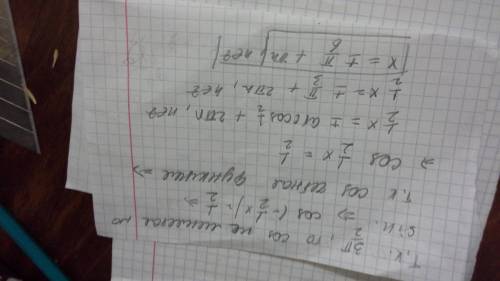 Т.к. 3π/2, то cos не меняется по
sin. ⇒ cos (-1/2 x) = 1/2 ⇒
т.к cos четная функция ⇒
⇒ cos 1/2 x = 1/2
1/2 x = ± arccos 1/2 + 2πn, n∈z
1/2 x = ± π/3 + 2πn, n∈z
x = ± π/6 + πn, n∈z